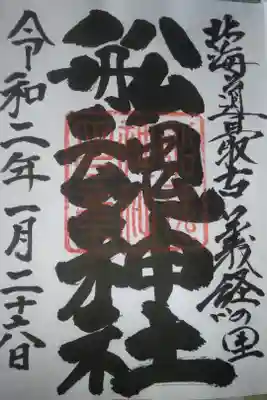 北海道最古義経の里
船魂神社
令和二年一月二十六日